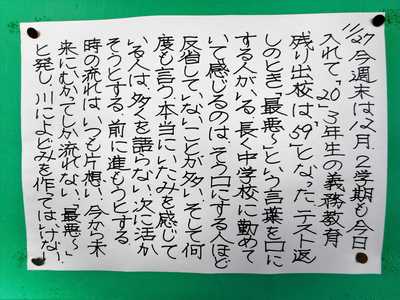 11/27 今週末は12月。2学期も今日
入れて、"20"。3年生の義務教育
残り出校は、"59"となった。テスト返
しのとき、「最悪〜」という言葉を口に
する人がいる。長く中学校に勤めて
いて感じるのは、そう口にする人ほど
反省していないことが多い。そして何
度も言う。本当にいたみを感じて
いる人は、多くを語らない。次に活か
そうとする。前に進もうとする。
時の流れは、いつも片想い。今から未
来にむかってしか流れない。「最悪〜」
と発し、川によどみを作ってはいけない。